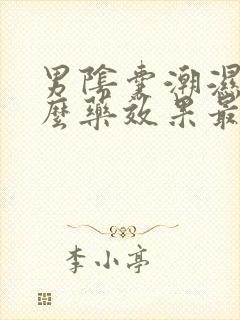 男陰囊潮濕
麼藥效果最
李小亭